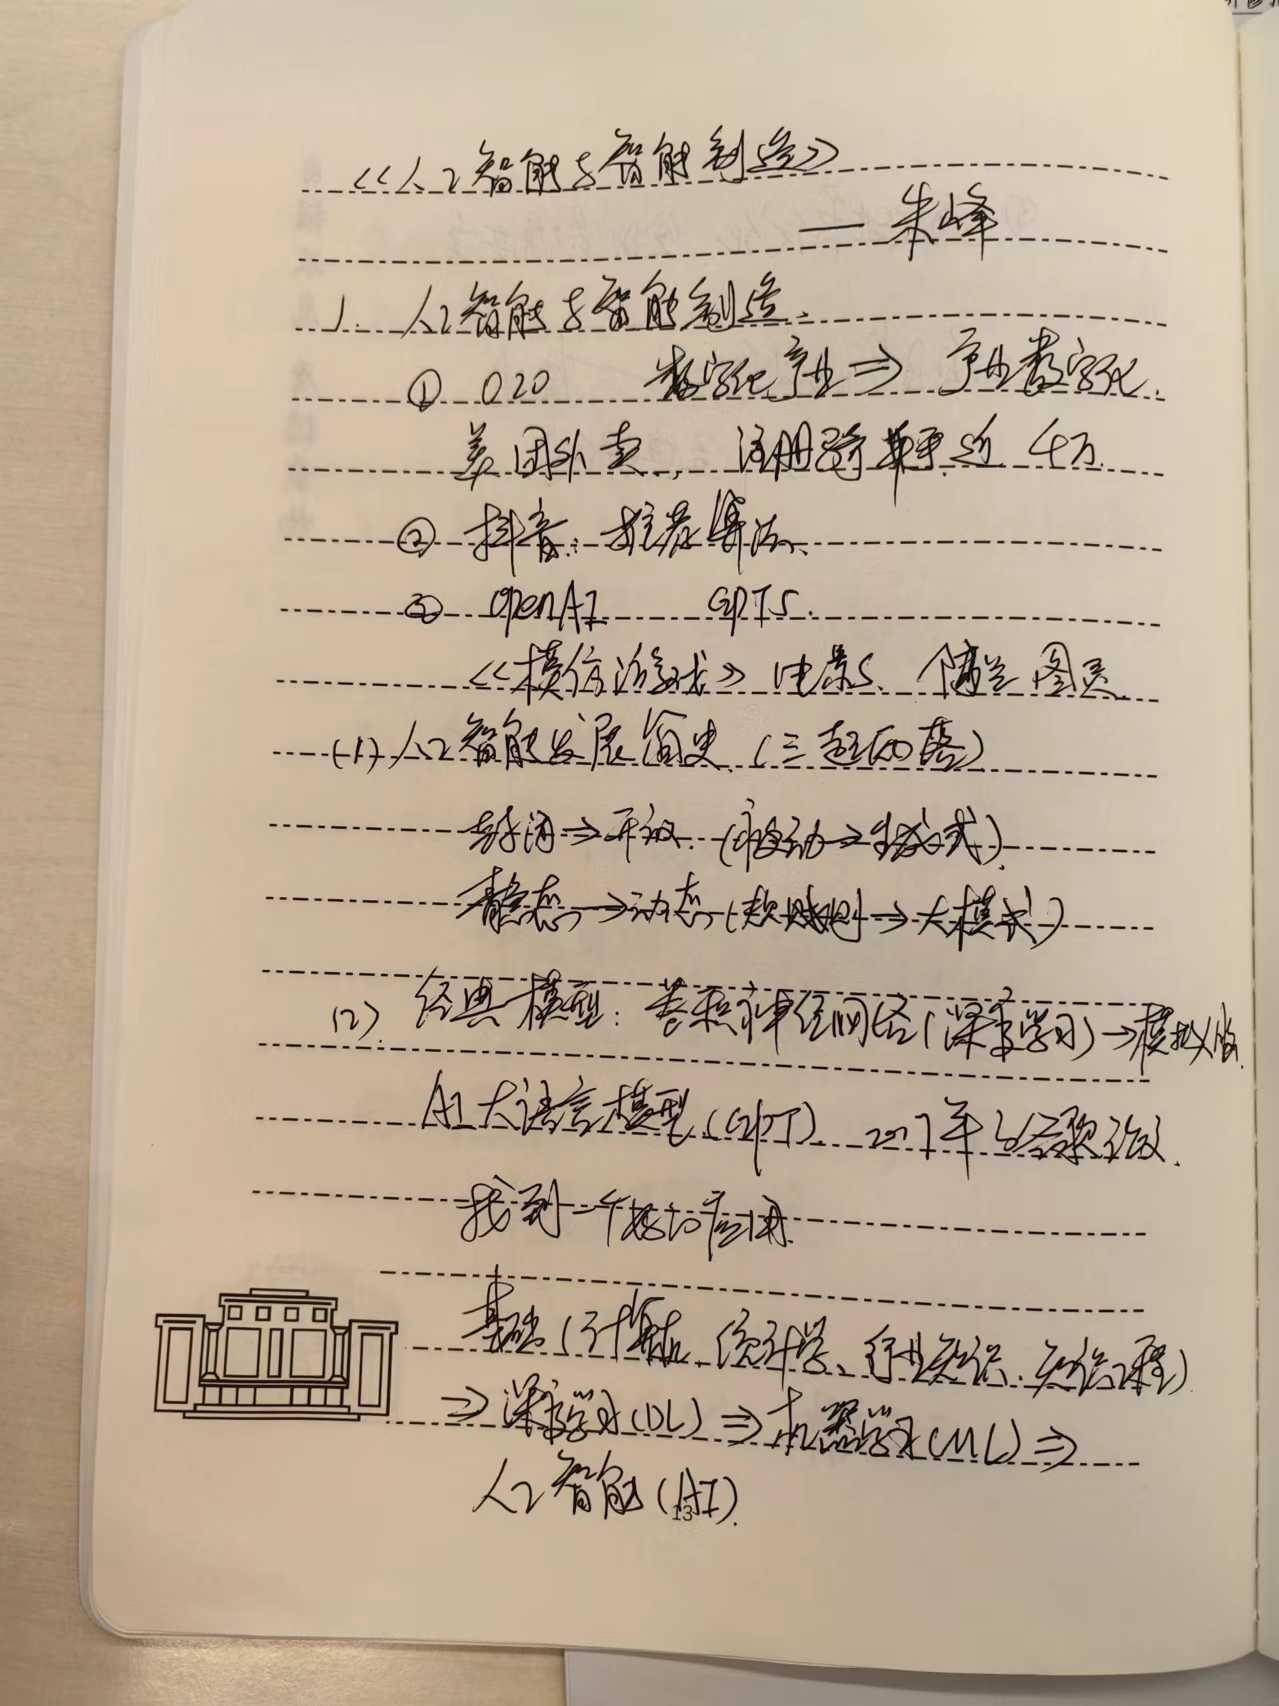 《人工智能与智能制造》
—— 朱峰
1. 人工智能与智能制造.
① O2O 数字化产业⇒ 产业数字化.
美团外卖, 注册骑手近 千万
② 抖音: 推荐算法.
③ OpenAI GPT5.
《模仿游戏》电影, 阿兰图灵
(1) 人工智能发展简史 (三起两落)
封闭⇒开放. (被动→生成式)
静态→动态 (规则→大模式)
(2) 经典模型: 卷积神经网络(深度学习)→模拟人脑
AI大语言模型(GPT) 2017年谷歌论文.
找到一个好的应用.
基础 (计算机、统计学、行业知识、知识工程)
⇒深度学习(DL)⇒机器学习(ML)⇒
人工智能(AI).
13